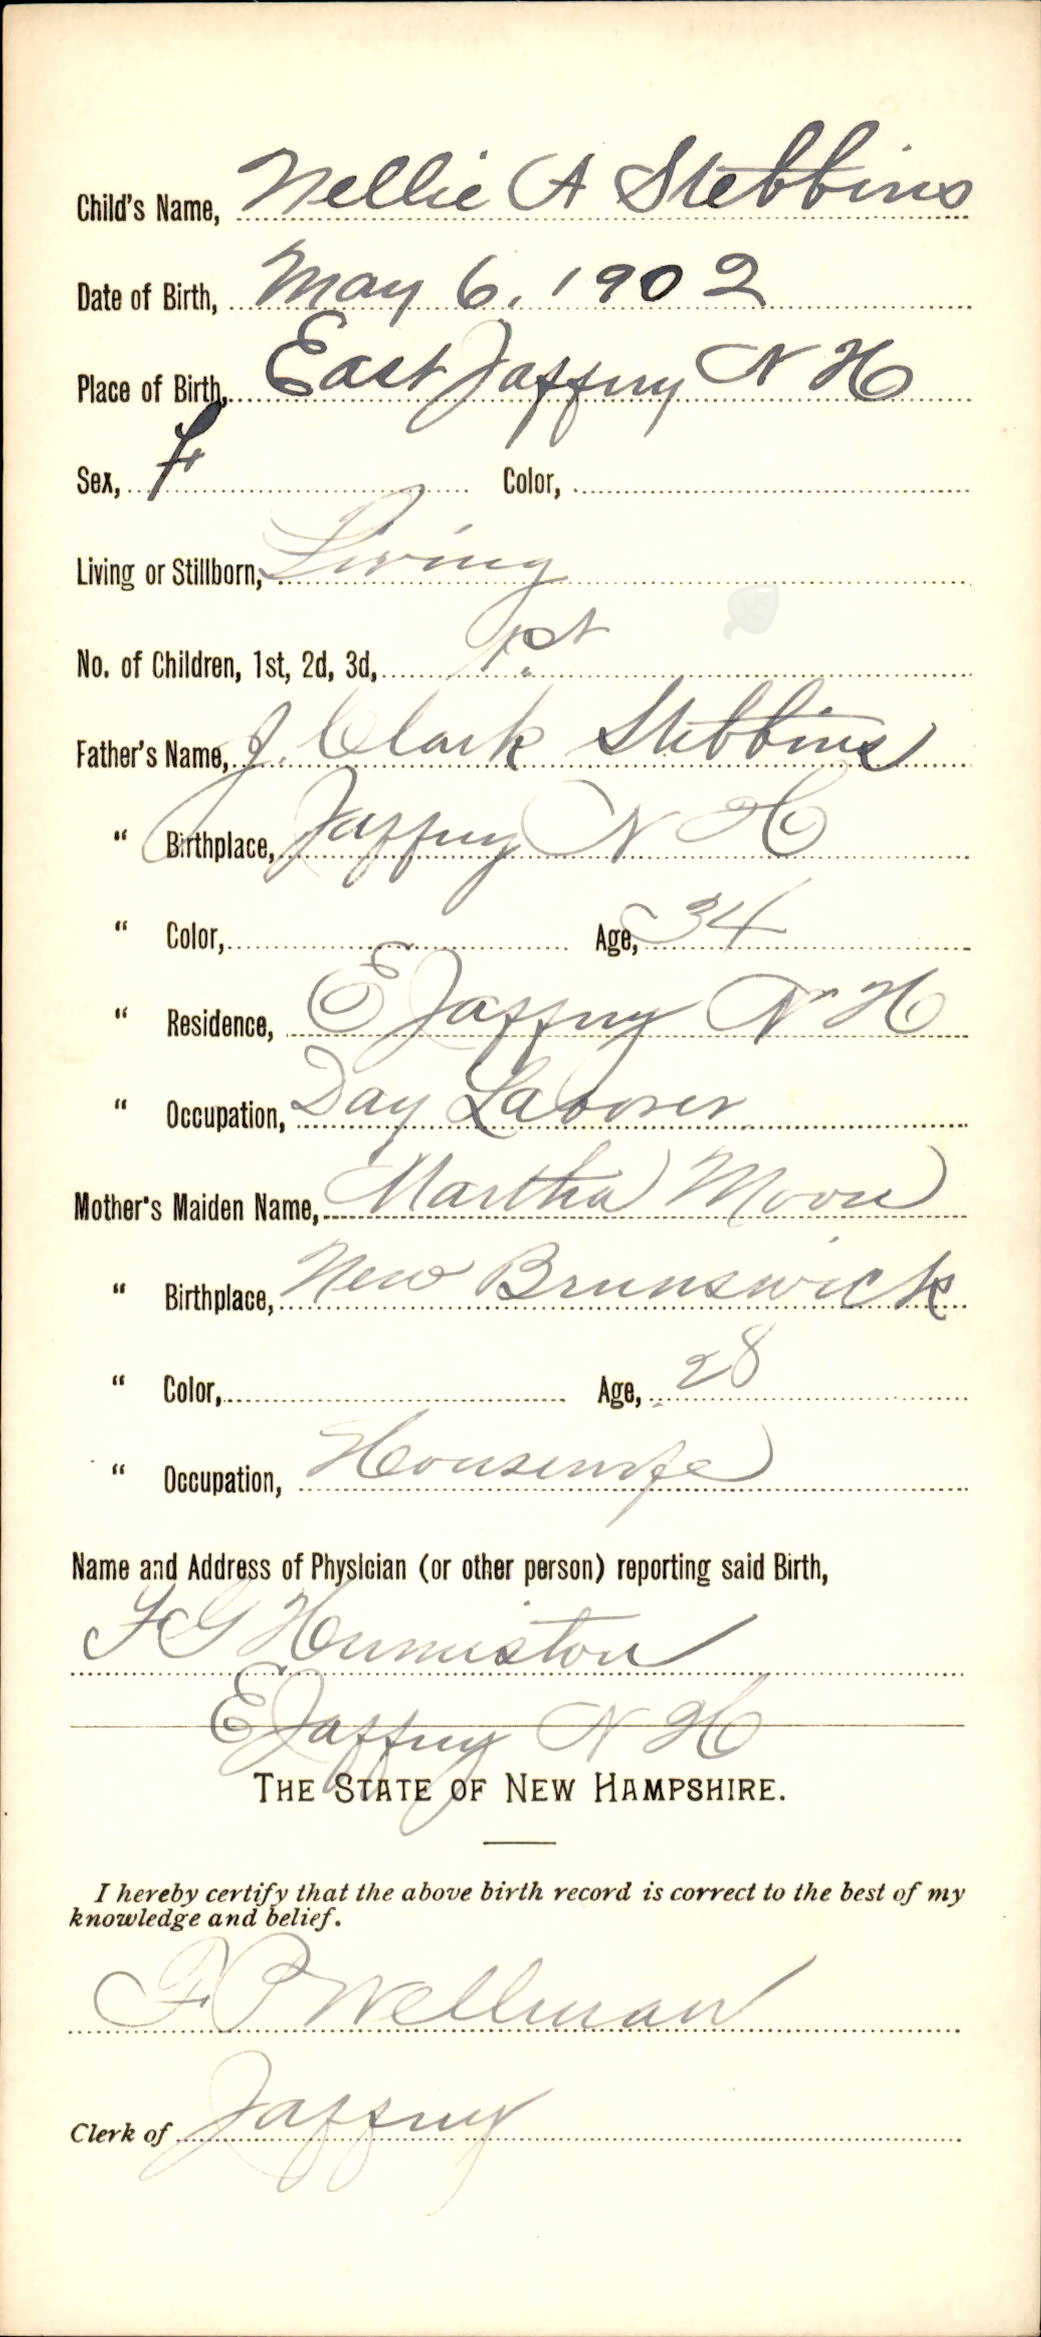 Child's Name, Nellie A Stebbins
Date of Birth, May 6, 1902
Place of Birth, East Jaffrey N H
Sex, F Color,
Living or Stillborn, Living
No. of Children, 1st, 2d, 3d, 1st
Father's Name, J. Clark Stebbins
" Birthplace, Jaffrey N H
" Color, Age, 34
" Residence, E Jaffrey N H
" Occupation, Day Laborer
Mother's Maiden Name, Martha Moore
" Birthplace, New Brunswick
" Color, Age, 28
" Occupation, Housewife
Name and Address of Physician (or other person) reporting said Birth,
F G Humiston
E Jaffrey N H
THE STATE OF NEW HAMPSHIRE.
I hereby certify that the above birth record is correct to the best of my
knowledge and belief.
F P Wellman
Clerk of Jaffrey